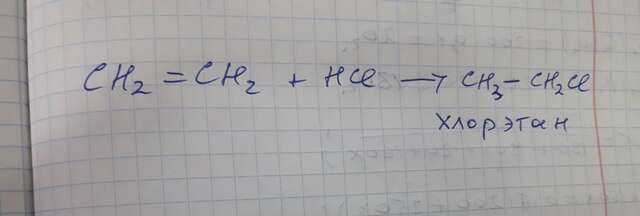 CH₂ = CH₂ + HCl → CH₃ – CH₂Cl
хлорэтан